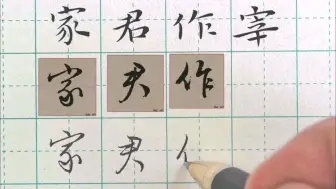 家君作宰
家君作
家君亻